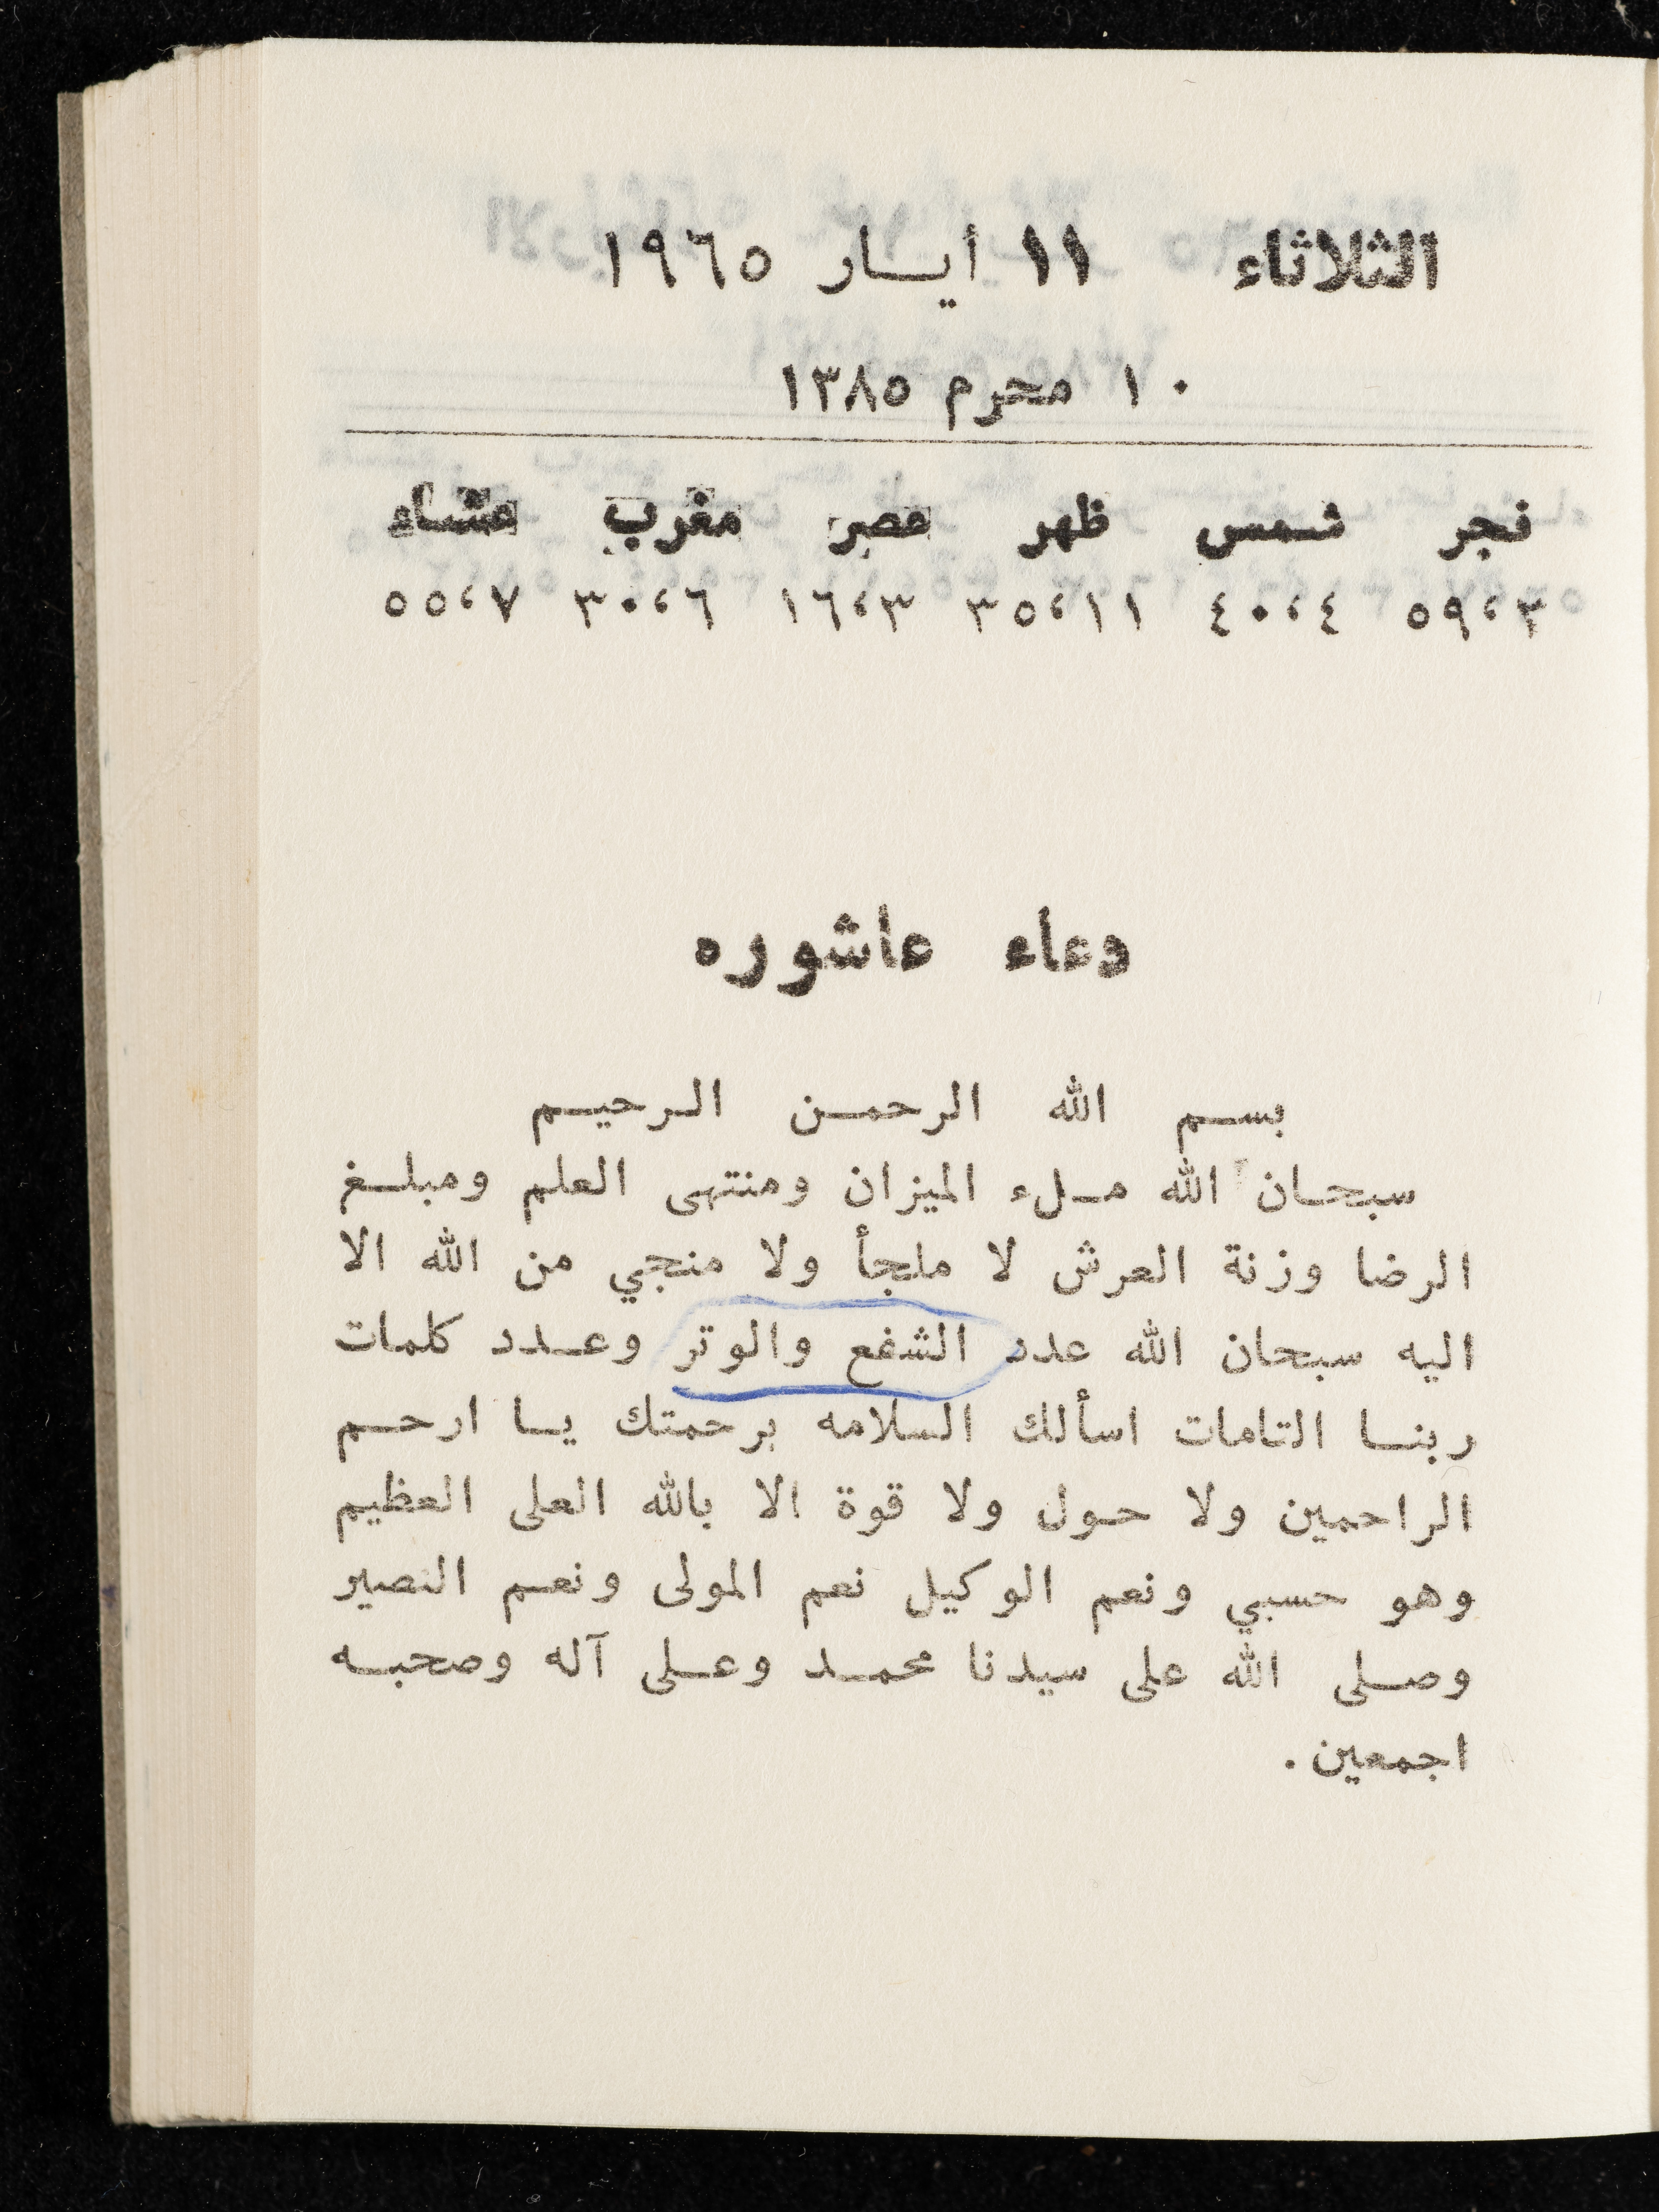 الثلاثاء ١١ أيسار ١٩٦٥
١٠ محرم ١٣٨٥
فجر شمس ظهر عصر مغرب عشاء
٥٩،٣ ٤٠،٤ ٣٥،١١ ١٦،٣ ٣٠،٦ ٥٥،٧
دعاء عاشوره
بسم الله الرحمن الرحيم
سبحان الله ملء الميزان ومنتهى العلم ومبلغ
الرضا وزنة العرش لا ملجأ ولا منجي من الله الا
اليه سبحان الله عدد الشفع والوتر وعدد كلمات
ربنا التامات اسألك السلامه برحمتك يا ارحم
الراحمين ولا حول ولا قوة الا بالله العلى العظيم
وهو حسبي ونعم الوكيل نعم المولى ونعم النصير
وصلى الله على سيدنا محمد وعلى آله وصحبه
اجمعين .